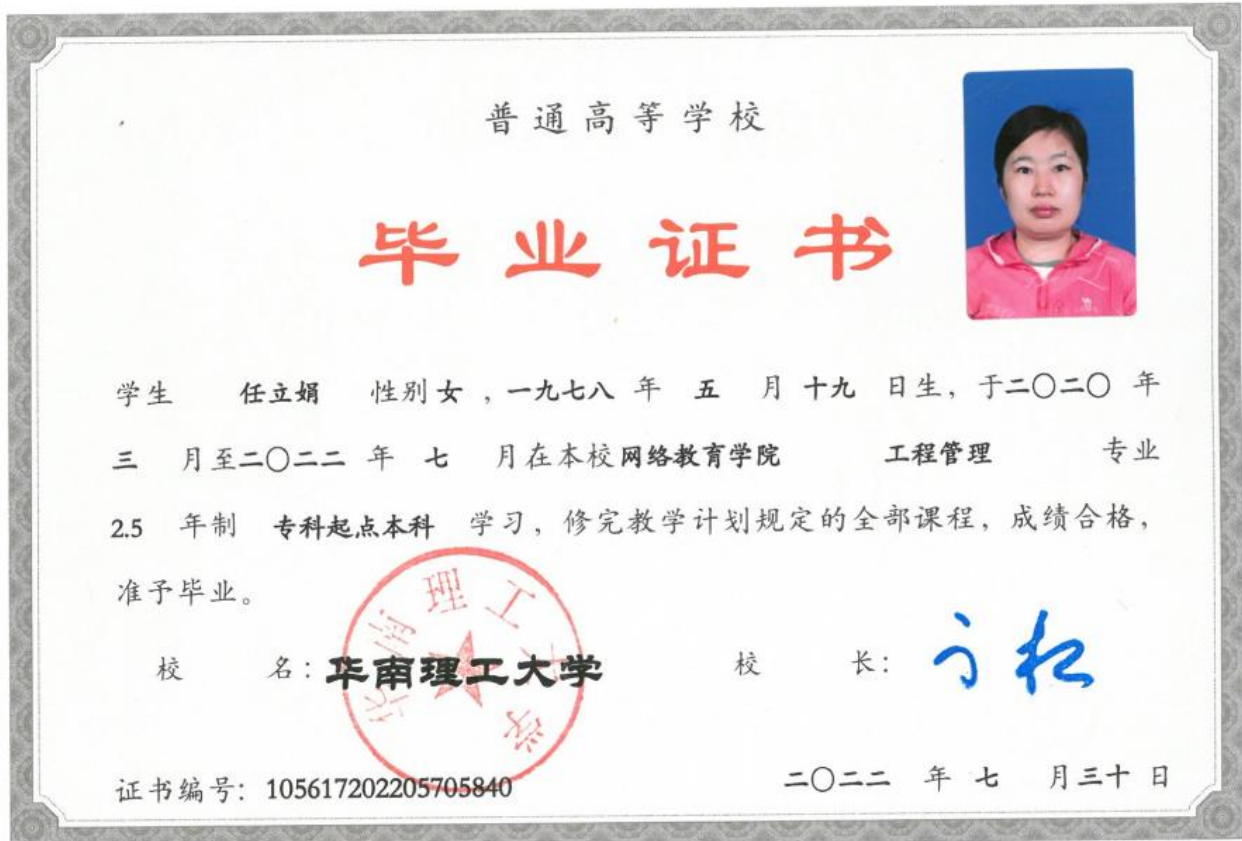 普通高等学校
毕业证书
学生 任立娟 性别女，一九七八 年 五 月 十九 日生，于二〇二〇 年
三 月至二〇二二 年 七 月在本校网络教育学院 工程管理 专业
2.5 年制 专科起点本科 学习，修完教学计划规定的全部课程，成绩合格，
准予毕业。
华南理工大学
校 名：华南理工大学 校 长：
证书编号：105617202205705840 二〇二二 年 七 月三十 日